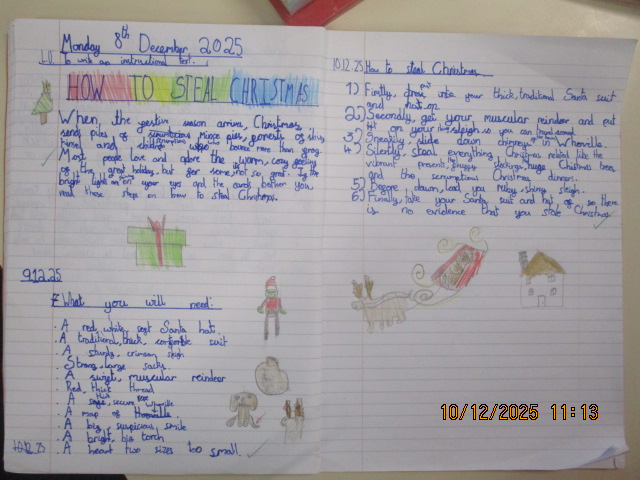 Monday 8th December 2025
L.O To write an instructional text.
HOW TO STEAL CHRISTMAS
When the festive season arrives, Christmas
send piles of scrumptious mince pies, ponests of
and children
Most people love and adore the warm, cosy feeling
of the great holiday, but for some, not so great. If the
bright light on your eyes and the carols bother you,
read these steps on how to steal Christmas.
9.12.25
What you will need:
. A red, white, soft Santa hat.
. A traditional, thick, comfortable suit
. A sturdy, crimson sleigh
. Strong, large sacks.
. A swift, muscular reindeer
. Red, thick thread
. A safe, secure
. A map of Whoville.
. A big, suspicious smile
. A bright, big torch
10.12.25 . A heart two sizes too small.
10.12.25 How to steal Christmas
1) Firstly, put into your thick, traditional Santa suit
and hat on.
2) Secondly, get your muscular reindeer and put
it on your sleigh so you can travel around
3) Sneakily, slide down chimneys in Whoville.
4) Silently, steal everything Christmas related like the
vibrant presents, snuggly stockings, huge Christmas trees
and the scrumptious Christmas dinners.
5) Before dawn, load you ruby, shiny sleigh.
6) Finally, take your Santa suit and hat of so there
is no evidence that you stole Christmas
10/12/2025 11:13